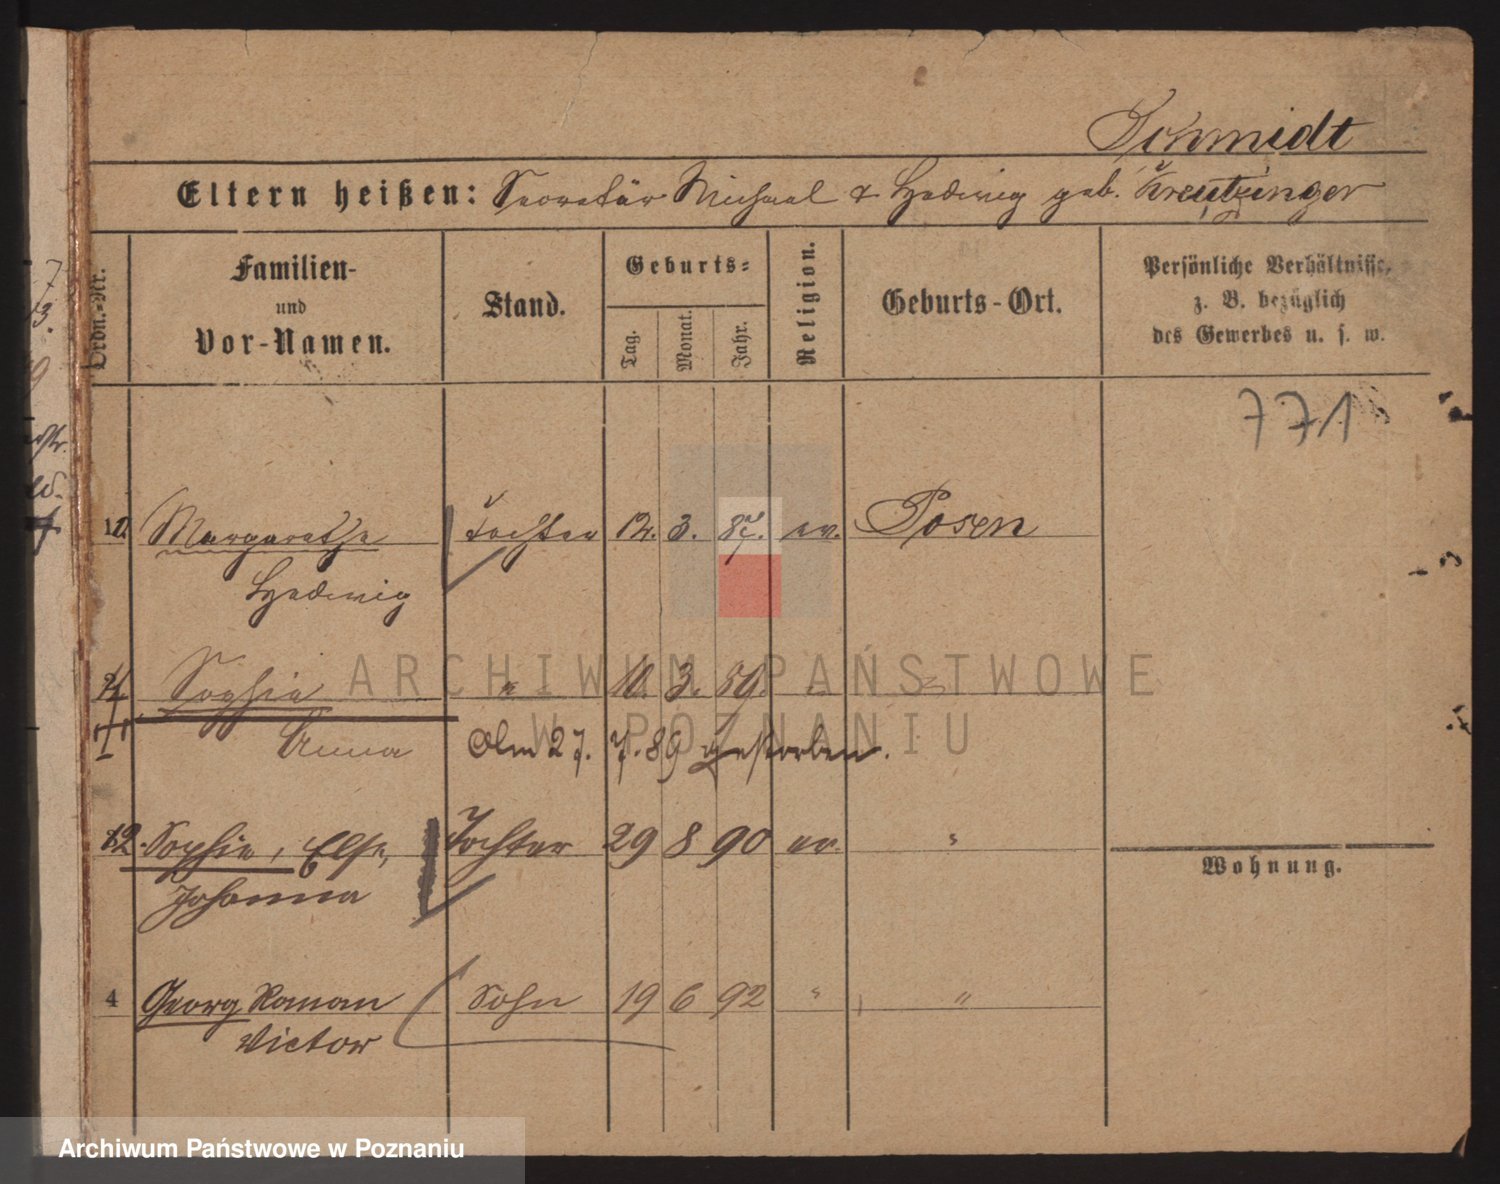 Schmidt
Eltern heißen: Secretär Michael & Hedwig geb. Kreutzinger
Ordn.-Nr.
Familien-
und
Vor-Namen.
Stand.
Geburts-
Tag.
Monat.
Jahr.
Religion.
Geburts-Ort.
Persönliche Verhältnisse,
z. B. bezüglich
des Gewerbes u. s. w.
771
Margarethe Tochter 12. 3. 87. ev. Posen
Hedwig
Sophie " 10. 3. 89. " "
Anna Am 27. 7. 89 gestorben.
Sophie, Else, Tochter 29 8 90 ev. "
Johanna
Wohnung.
4 Georg Roman Sohn 19 6 92 " "
Victor
ARCHIWUM PAŃSTWOWE
W POZNANIU
Archiwum Państwowe w Poznaniu